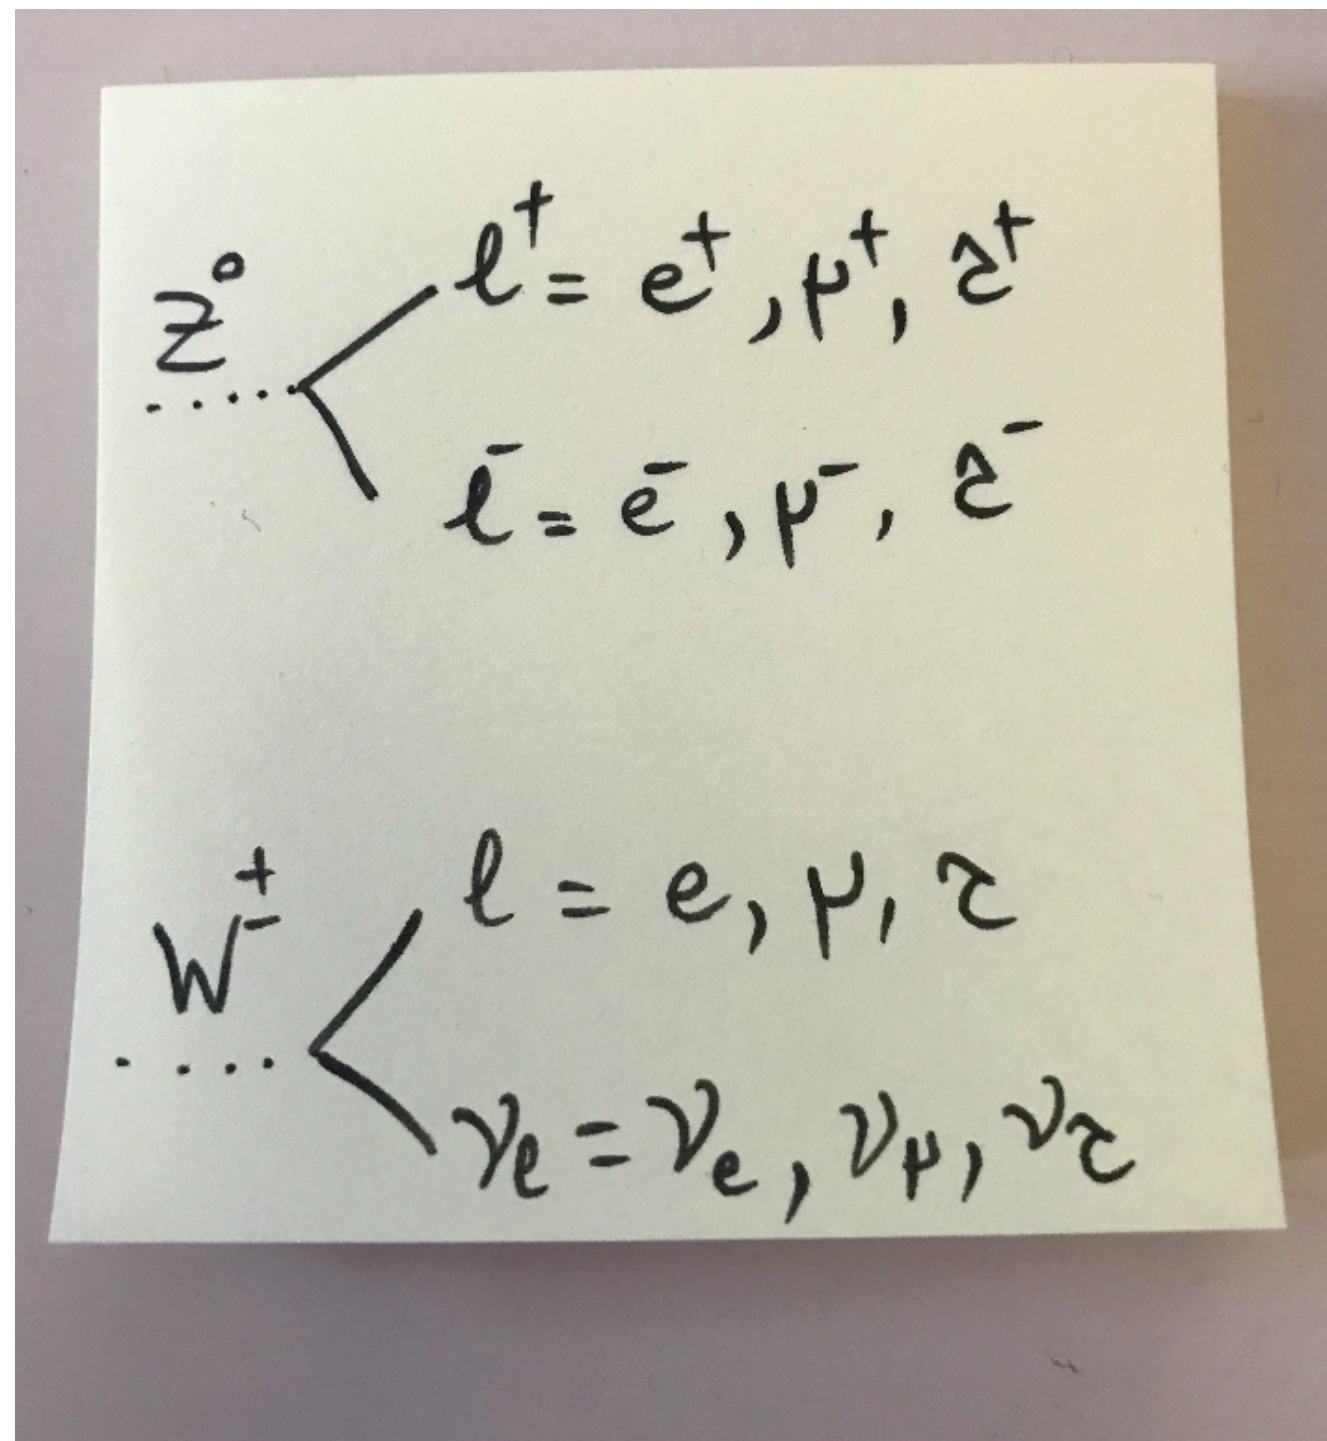 Z⁰
ℓ⁺ = e⁺, μ⁺, τ⁺
ℓ⁻ = e⁻, μ⁻, τ⁻
W±
ℓ = e, μ, τ
νℓ = νe, νμ, ντ